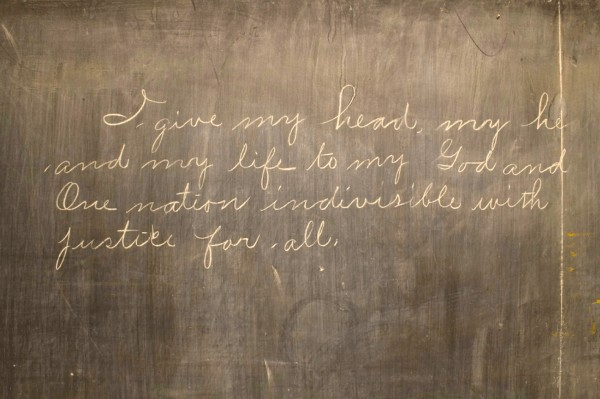 I give my head, my he
and my life to my God and
One nation indivisible with
justice for all.